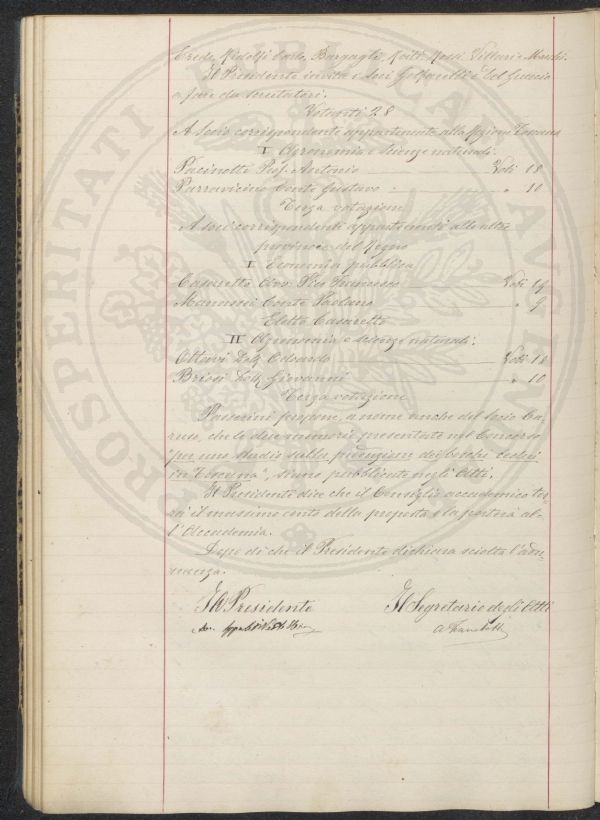 Erede, Ridolfi Carlo, Bargagli, Rossi, Vittorio Marchi.
Il Presidente invita i soci Golfarelli e Del Guercio
a fare da scrutatori.
Votanti 28
A Socio corrispondente appartenente alla Regione Toscana
I Agronomia e scienze naturali.
Pacinotti Prof. Antonio Voti 18
Parravicino Conte Gustavo " 10
Terza votazione
A soci corrispondenti appartenenti alle altre
provincie del Regno
I Economia pubblica
Casaretto Avv. Pier Francesco Voti 19
Manassei Conte Paolano " 9
Eletto Casaretto
II Agronomia e scienze naturali.
Ottavi Dott. Edoardo Voti 18
Briosi Dott. Giovanni " 10
Terza votazione
Passerini propone, a nome anche del socio Ca-
ruso, che le due memorie presentate nel Concorso
"per uno studio sulla produzione dei boschi cedui
in Toscana", siano pubblicate negli Atti.
Il Presidente dice che il Consiglio accademico ter-
rà il massimo conto della proposta e la porterà al-
l'Accademia.
Dopo di che il Presidente dichiara sciolta l'adu-
nanza.
Il Presidente Il Segretario degli Atti
A Franchetti
PROSPERITATI PUBLICAE AUGENDAE